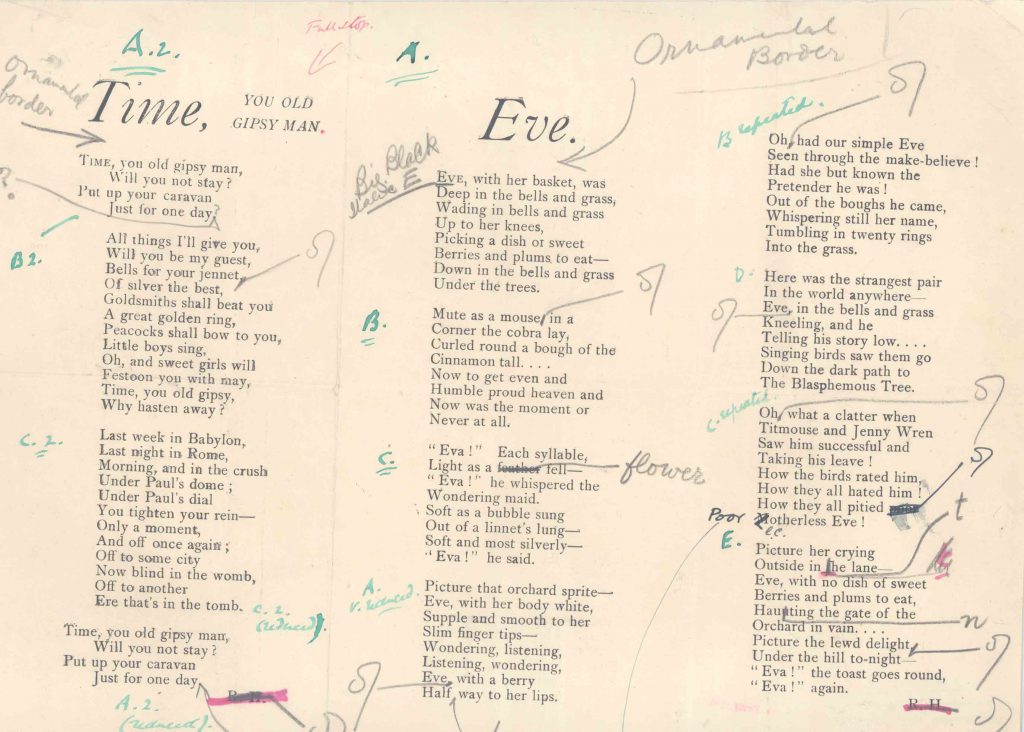 A.2.
Full stop.
A.
Ornamental
Border
Ornamental
border
Time,
YOU OLD
GIPSY MAN.
TIME, you old gipsy man,
Will you not stay?
Put up your caravan
Just for one day?
B2.
All things I'll give you,
Will you be my guest,
Bells for your jennet,
Of silver the best,
Goldsmiths shall beat you
A great golden ring,
Peacocks shall bow to you,
Little boys sing,
Oh, and sweet girls will
Festoon you with may,
Time, you old gipsy,
Why hasten away?
C.2.
Last week in Babylon,
Last night in Rome,
Morning, and in the crush
Under Paul's dome;
Under Paul's dial
You tighten your rein—
Only a moment,
And off once again;
Off to some city
Now blind in the womb,
Off to another
Ere that's in the tomb.
C.2.
(reduced).
Time, you old gipsy man,
Will you not stay?
Put up your caravan
Just for one day,
R. H.
A.2.
(reduced).
Eve.
Big Black
E
EVE, with her basket, was
Deep in the bells and grass,
Wading in bells and grass
Up to her knees,
Picking a dish of sweet
Berries and plums to eat—
Down in the bells and grass
Under the trees.
B.
Mute as a mouse, in a
Corner the cobra lay,
Curled round a bough of the
Cinnamon tall. . . .
Now to get even and
Humble proud heaven and
Now was the moment or
Never at all.
C.
"Eva!" Each syllable,
Light as a feather fell—
flower
"Eva!" he whispered the
Wondering maid.
Soft as a bubble sung
Out of a linnet's lung—
Soft and most silverly—
"Eva!" he said.
A.
v. reduced.
Picture that orchard sprite—
Eve, with her body white,
Supple and smooth to her
Slim finger tips—
Wondering, listening,
Listening, wondering,
Eve, with a berry
Half way to her lips.
B repeated.
Oh, had our simple Eve
Seen through the make-believe!
Had she but known the
Pretender he was!
Out of the boughs he came,
Whispering still her name,
Tumbling in twenty rings
Into the grass.
D.
Here was the strangest pair
In the world anywhere—
Eve, in the bells and grass
Kneeling, and he
Telling his story low. . . .
Singing birds saw them go
Down the dark path to
The Blasphemous Tree.
C. repeated.
Oh, what a clatter when
Titmouse and Jenny Wren
Saw him successful and
Taking his leave!
How the birds rated him,
How they all hated him!
How they all pitied
Poor Motherless Eve!
E.
Picture her crying
Outside in the lane—
t
Eve, with no dish of sweet
Berries and plums to eat,
Haunting the gate of the
n
Orchard in vain. . . .
Picture the lewd delight,
Under the hill to-night—
"Eva!" the toast goes round,
"Eva!" again.
R. H.